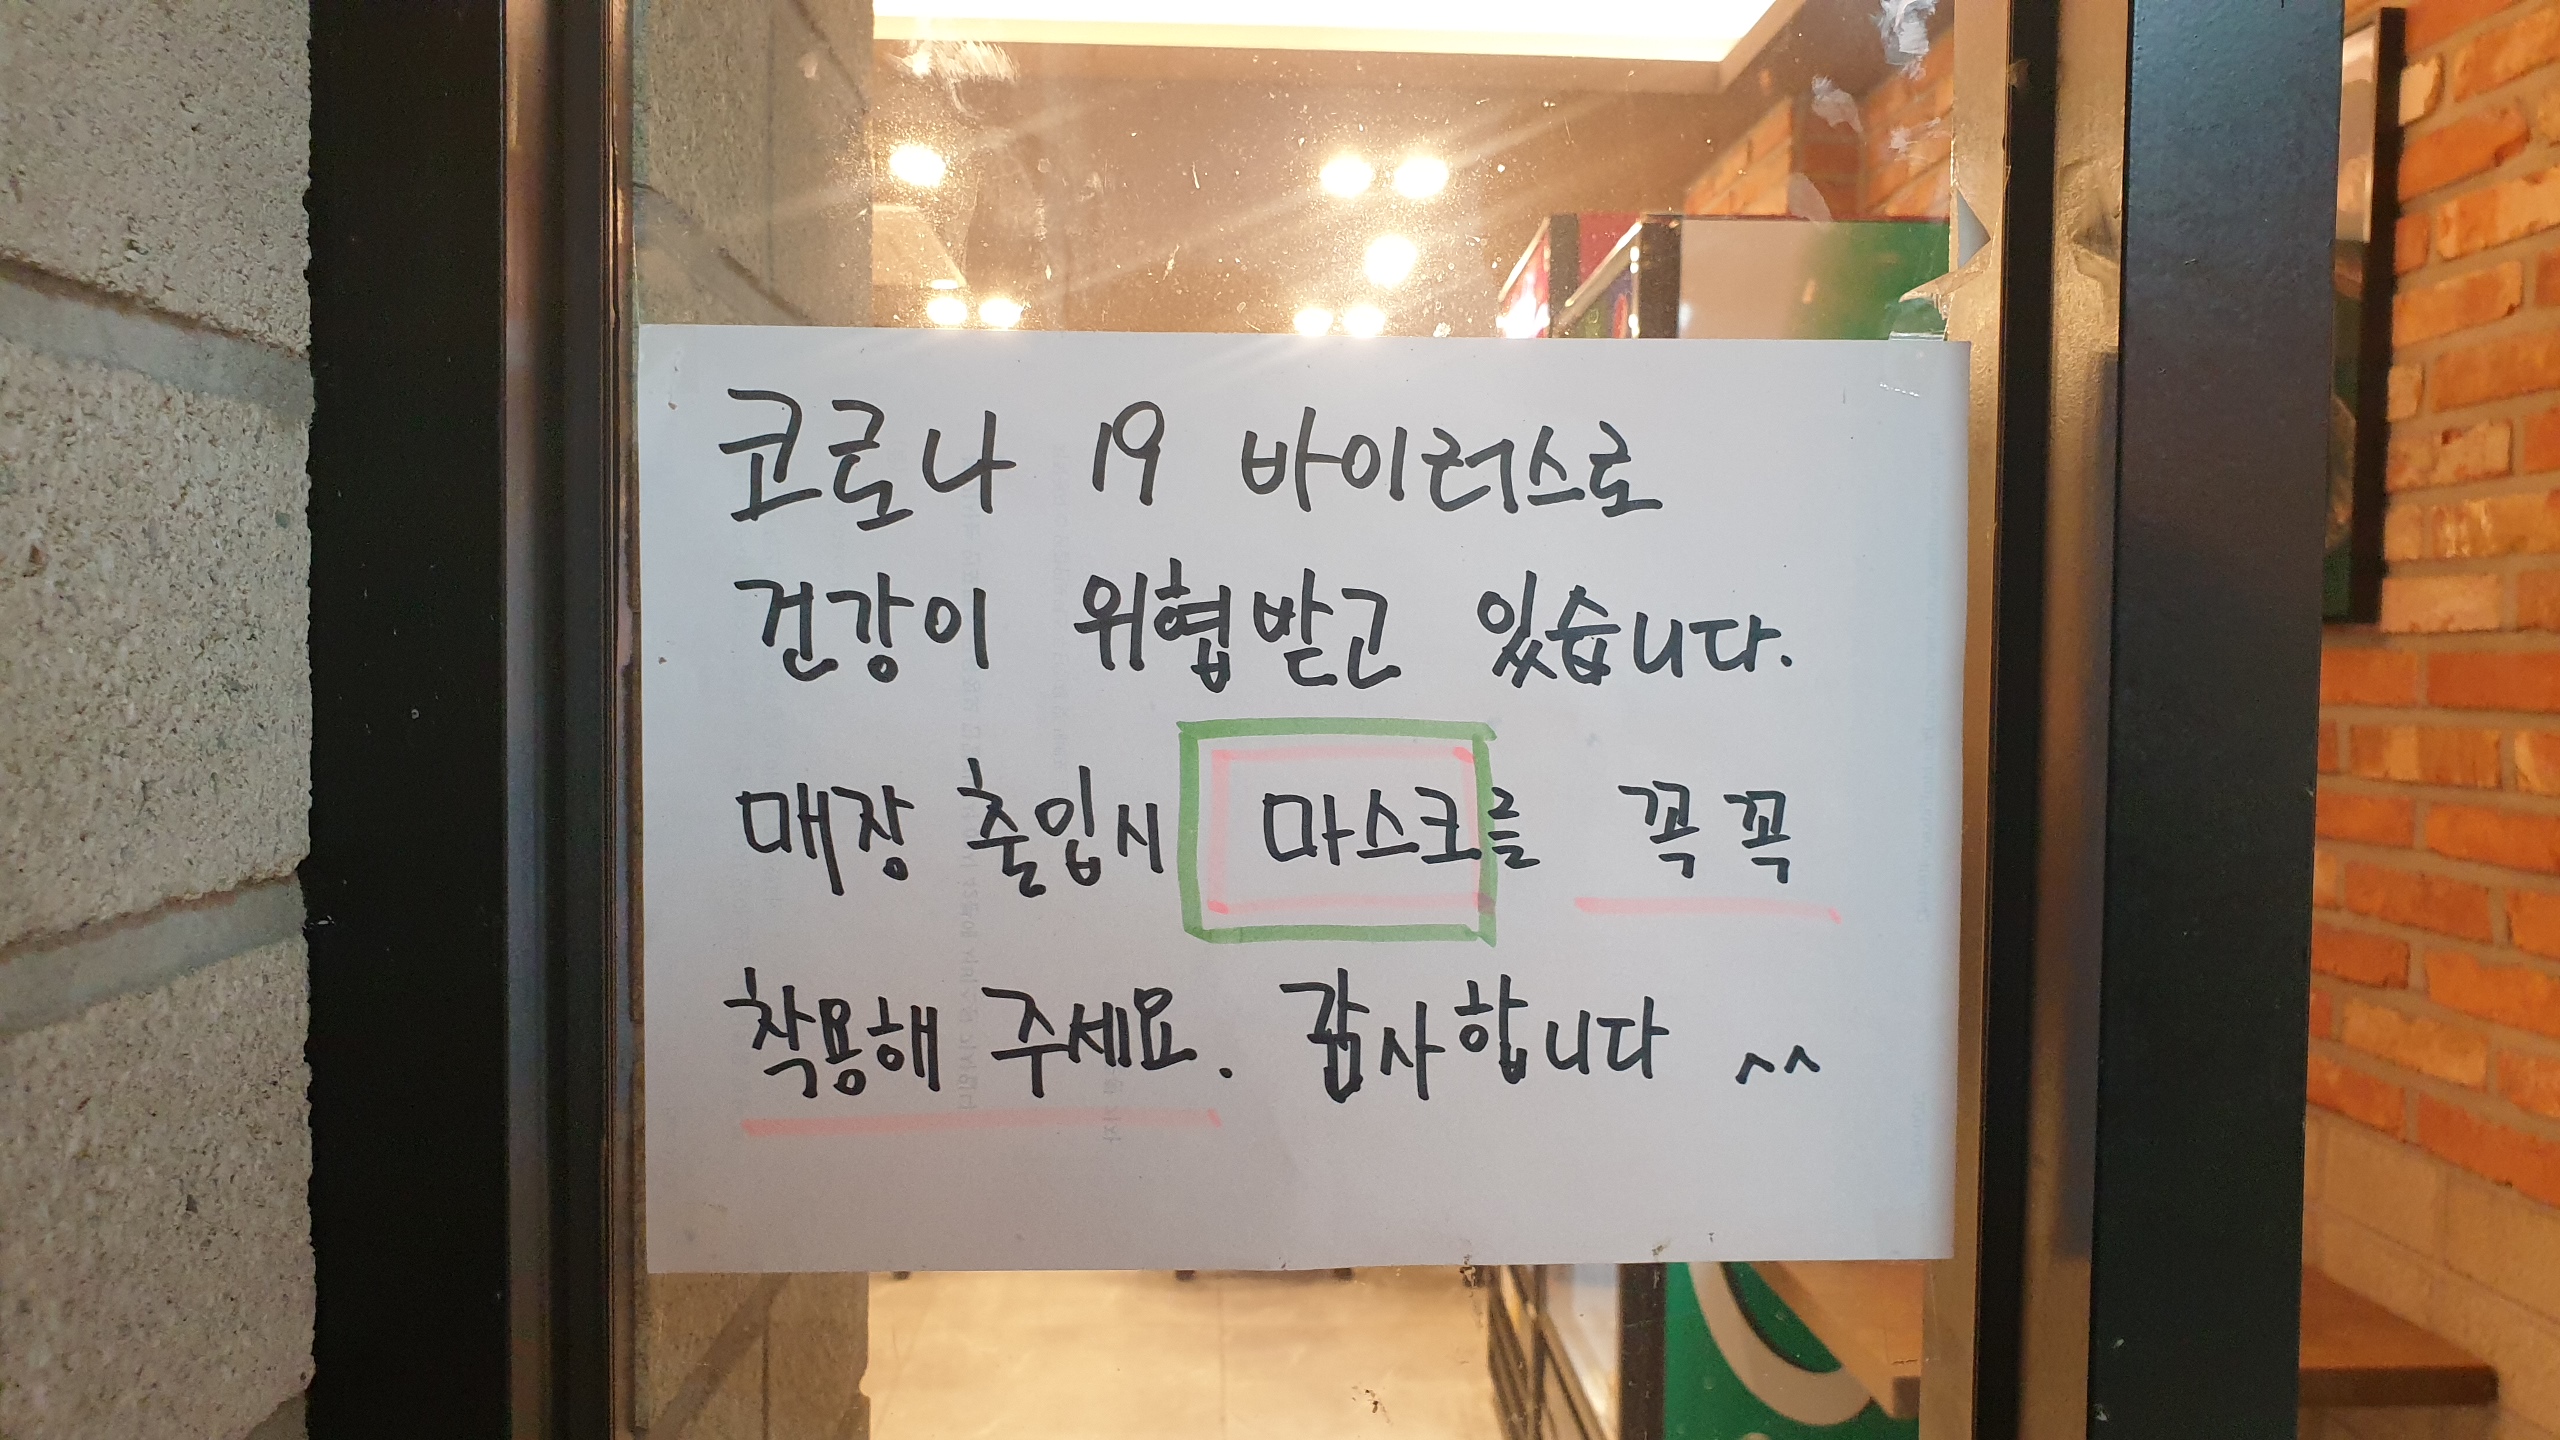 코로나 19 바이러스로
건강이 위협받고 있습니다.
매장 출입시 마스크를 꼭꼭
착용해 주세요. 감사합니다 ^^